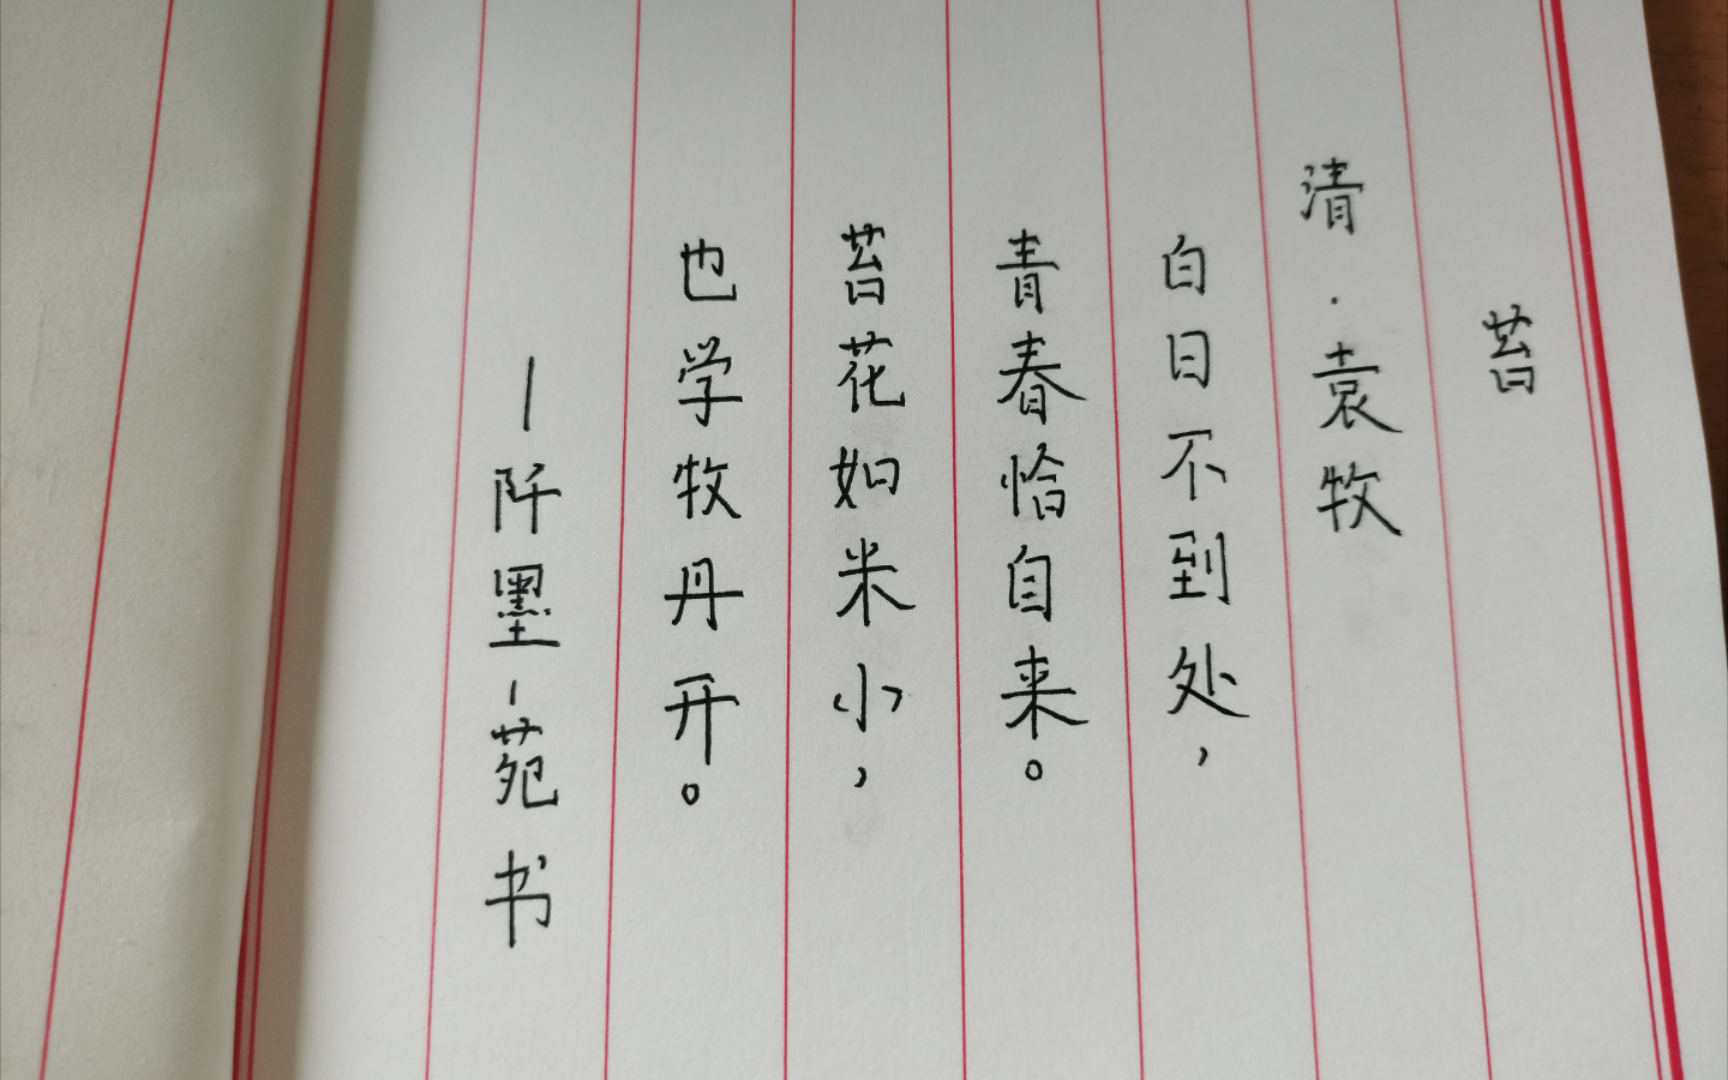 苔
清·袁牧
白日不到处，
青春恰自来。
苔花如米小，
也学牧丹开。
—阡墨-苑书